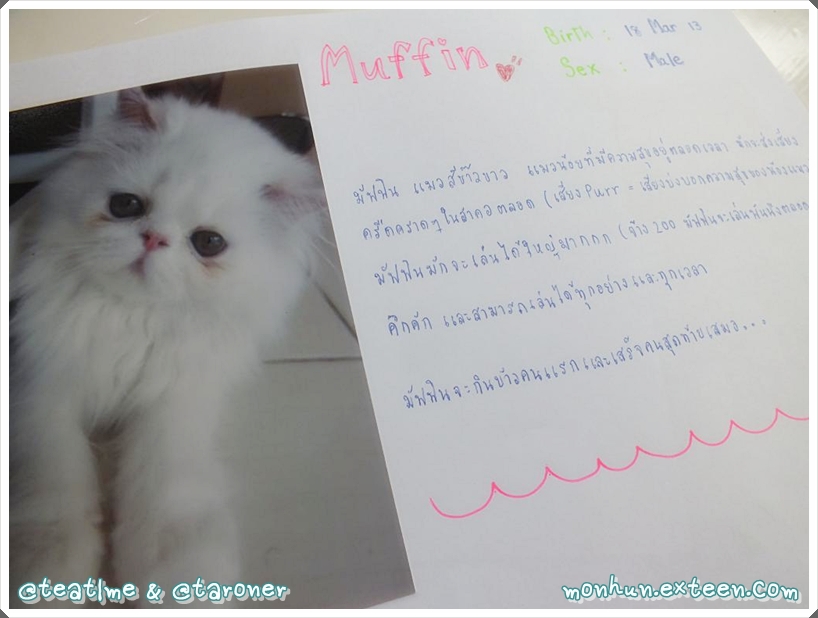 Muffin
Birth : 18 Mar 13
Sex : Male
มัฟฟิน แมวสีขาว แมวน้อยที่มีความสุขอยู่ตลอดเวลา มักจะส่งเสียง
ครืดคราดๆในลำคอตลอด (เสียง Purr = เสียงบ่งบอกความสุขของน้องแมว
มัฟฟินมักจะเล่นได้ใหญ่มากกก (จ้าง 200 มัฟฟินจะเล่นพันนึงตลอด
คึกคัก และสามารถเล่นได้ทุกอย่างและทุกเวลา
มัฟฟินจะกินข้าวคนแรกและเสร็จคนสุดท้ายเสมอ...
@teat!me & @taroner
monhun.exteen.com